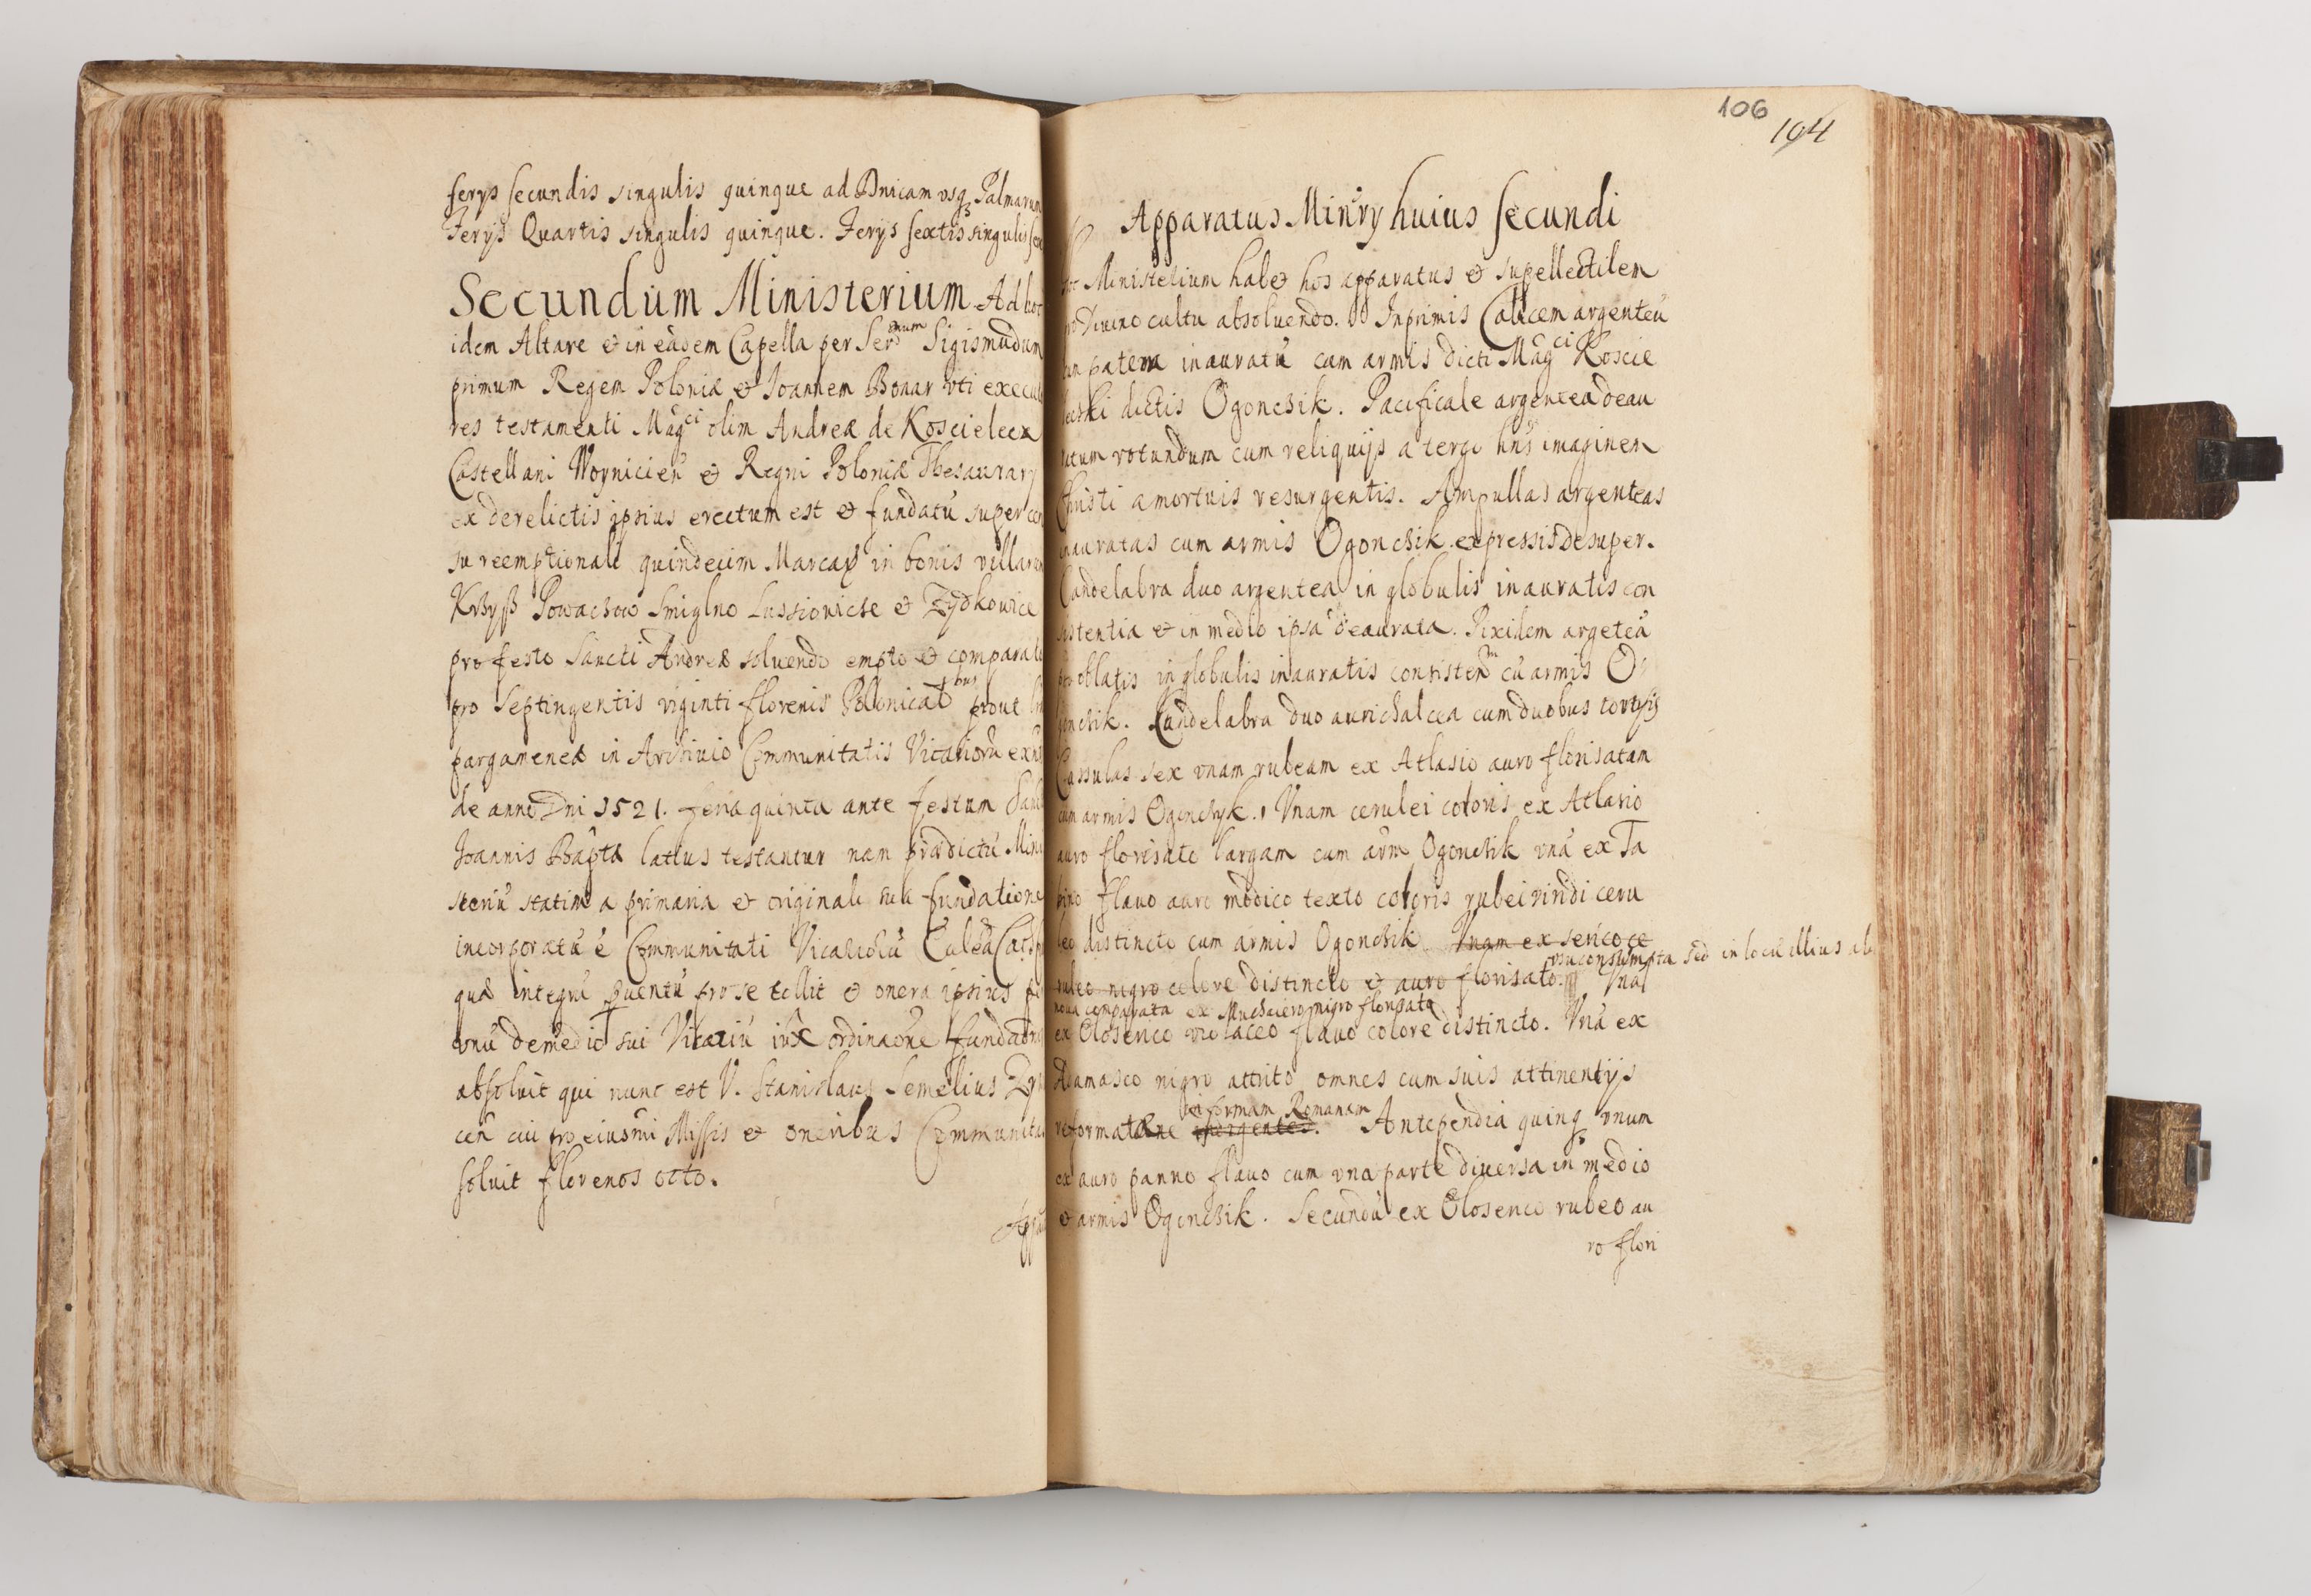 ferys secundis singulis quinque ad Dnicam vsq Palmarum
Ferys Quartis singulis quinque. Ferys sextis singulis
Secundum Ministerium Ad hoc
idem Altare et in eadem Capella per Ser num Sigismudum
primum Regem Poloniæ et Joannem Bonar vti execu
res testamenti Mag ci olim Andreæ de Koscielecz
Castellani Woynicień et Regni Poloniæ Thesaurary
ex derelictis ipsius erectum est et fundatū super cen
su reemptionali quindecim Marcaꝝ in bonis villarum
Powachow Smiglno Lussowicse et Zydkowice
pro festo Sancti Andreæ soluendo empto et comparato
pro Septingentis viginti florenis Polonica bus prout
pargameneæ in Archiuio Communitatis Vicariorū
de anno Dni 1521. feria quinta ante festum San
Joannis Bapta latius testantur nam prædictū Mini
steriū statim a primaria et originali sui fundatione
incorporatū è Communitati Vicariorū
quæ integrū ꝓuentū pro se tollit et onera ipsius
vnū demedio sui Vicariū iux ordinaōne fundaōnis
absoluit qui nunc est V. Stanislaus Semelius
cen cui pro eiusmi Missis et oneribus Communitas
soluit florenos octo.
106
104
Apparatus Minry huius secundi
Ministerium habet hos apparatus et supellectilem
pro Diuino cultu absoluendo. Inprimis Calicem argenteū
cum patena inauratū cum armis dicti Mag ci Koscie
lecski dictis Ogonchik. Pacificale argenteū deau
ratum rotundum cum reliquijs a tergo hns imaginem
Christi a mortuis resurgentis. Ampullas argenteas
inauratas cum armis Ogonchik expressis desuper.
Candelabra duo argentea in globulis inauratis con
sistentia et in medio ipsa deaurata. Pixidem argeteā
pro oblatis in globulis inauratis consisten m cū armis O
gonchik. Candelabra duo aurichalcea cum duobus tortysij
Cassulas sex vnam rubeam ex Atlasio auro florisatam
cum armis Ogonchyk. Vnam cerulei coloris ex Atlasio
auro florisato largam cum arm Ogonchik vnā ex Ta
bino flauo auro modico texto coloris rubei viridi ceru
leo distincto cum armis Ogonchik Vnam ex serico ce
vsu consumpta sed in locū illius ali
ruleo nigro colore distincto et auro florisato. Vnā
noua comparata ex Muchaiero nigro florisata
ex Olosenco violaceo flauo colore distincto. Vnā ex
Adamasco nigro attrito omnes cum suis attinentijs
in formam Romanam
reformatæ ne. Antependia quinq vnum
ex auro panno flauo cum vna parte diuersa in medio
et armis Ogonchik. Secundū ex Olosenco rubeo au
ro flori